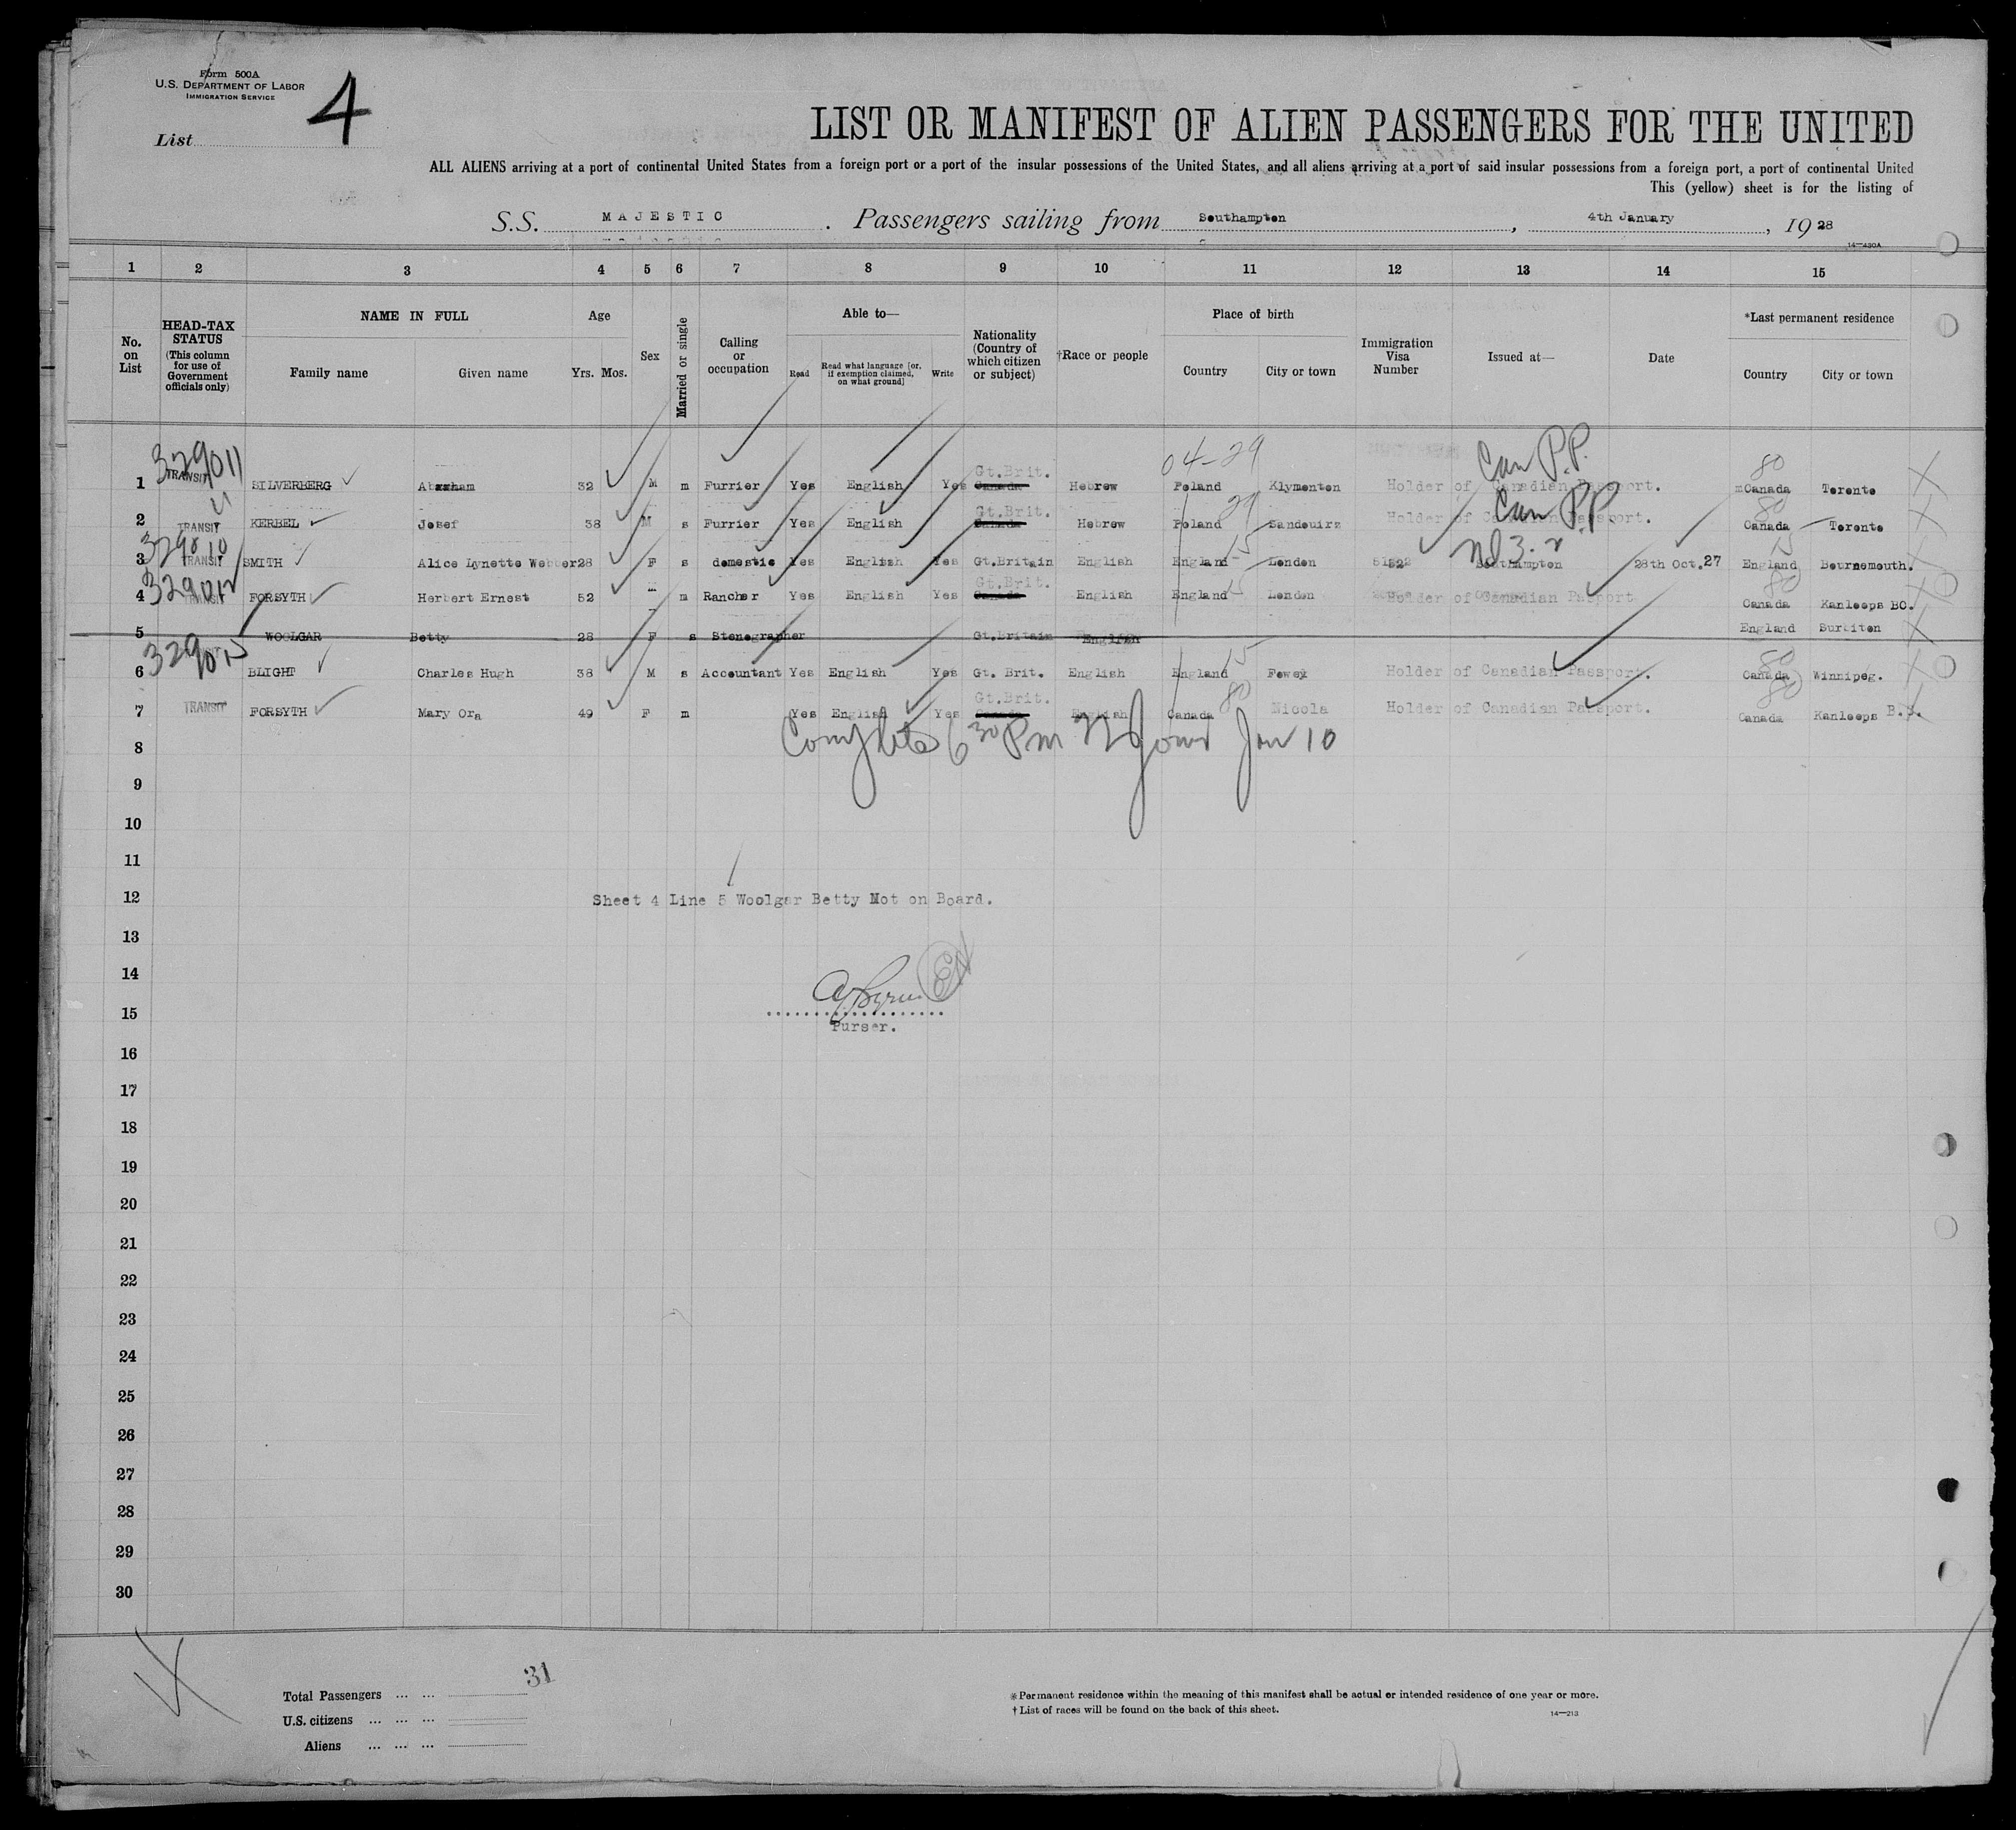 Form 500A
U.S. DEPARTMENT OF LABOR
IMMIGRATION SERVICE
List 4
LIST OR MANIFEST OF ALIEN PASSENGERS FOR THE UNITED
ALL ALIENS arriving at a port of continental United States from a foreign port or a port of the insular possessions of the United States, and all aliens arriving at a port of said insular possessions from a foreign port, a port of continental United
This (yellow) sheet is for the listing of
S.S. MAJESTIC. Passengers sailing from Southampton, 4th January, 1928
14—430A
1 2 3 4 5 6 7 8 9 10 11 12 13 14 15
No. on List
HEAD-TAX STATUS (This column for use of Government officials only)
NAME IN FULL
Family name Given name
Age
Yrs. Mos.
Sex
Married or single
Calling or occupation
Able to—
Read
Read what language [or, if exemption claimed, on what ground]
Write
Nationality (Country of which citizen or subject)
†Race or people
Place of birth
Country City or town
Immigration Visa Number
Issued at—
Date
*Last permanent residence
Country City or town
329011 04-29 Can P.P. 80
Gt.Brit.
1 TRANSIT SILVERBERG Abraham 32 M m Furrier Yes English Yes Canada Hebrew Poland Klymonton Holder of Canadian Passport. Canada Toronto
Gt.Brit. 29 Can P.P 80
2 TRANSIT KERBEL Josef 38 M s Furrier Yes English Canada Hebrew Poland Sandouirz Holder of Canadian Passport. Canada Toronto
329010 15
3 TRANSIT SMITH Alice Lynette Webber 28 F s domestic Yes English Yes Gt.Britain English England London Southampton 28th Oct.27 England Bournemouth.
329012 Gt.Brit. 15 80
4 TRANSIT FORSYTH Herbert Ernest 52 m Rancher Yes English Yes Canada English England London Holder of Canadian Passport Canada Kanloops BC.
5 WOOLGAR Betty 28 F s Stenographer Gt.Britain English England Surbiton
15 80
6 BLIGHT Charles Hugh 38 M s Accountant Yes English Yes Gt. Brit. English England Fowey Holder of Canadian Passport. Canada Winnipeg.
Gt.Brit. 80 80
7 TRANSIT FORSYTH Mary Ora 49 F m Yes English Yes Canada English Canada Nicola Holder of Canadian Passport. Canada Kanloops B.C.
Complete 6 30 Pm Jan 10
8
9
10
11
12 Sheet 4 Line 5 Woolgar Betty Not on Board.
13
14
15
Purser.
16
17
18
19
20
21
22
23
24
25
26
27
28
29
30
31
Total Passengers ... ...
U.S. citizens ... ... ...
Aliens ... ... ...
*Permanent residence within the meaning of this manifest shall be actual or intended residence of one year or more.
†List of races will be found on the back of this sheet.
14—213